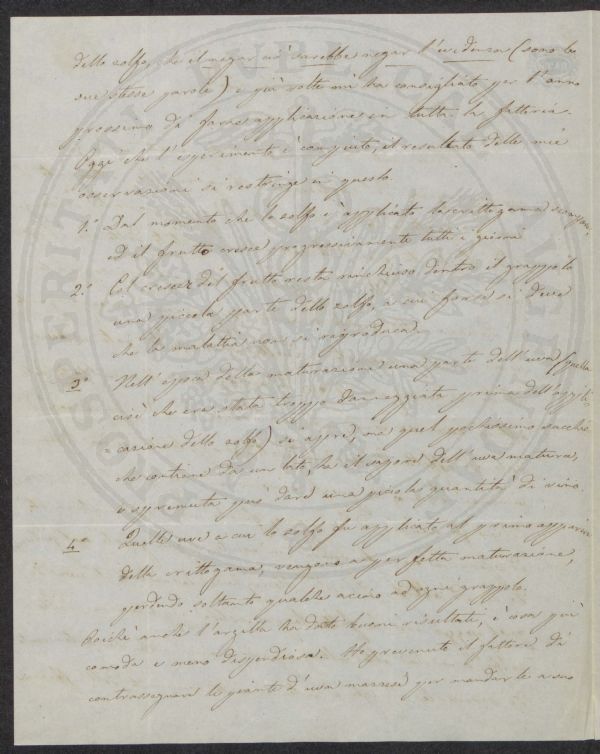 dello zolfo, che il negar ciò sarebbe negar l'evidenza (sono le
sue stesse parole) e più volte mi ha consigliato per l'anno
prossimo di farne applicazione in tutta la fattoria.
Oggi che l'esperimento è compiuto, il resultato delle mie
osservazioni si restringe in questo
1.° Dal momento che lo zolfo è applicato la crittogama scompare,
ed il frutto cresce progressivamente tutti i giorni
2.° Col crescer del frutto resta rinchiuso dentro il grappolo
una piccola parte dello zolfo, a cui forse si deve
che la malattia non si riproduca.
3.° Nell'epoca della maturazione una parte dell'uva (quella
cioè che era stata troppo danneggiata prima dell'appli-
=cazione dello zolfo) si aprì, ma quel pochissimo succhio
che contiene da un lato, ha il sapore dell'uva matura,
e spremuta può dare una piccola quantità di vino.
4.° Quelle uve a cui lo zolfo fu applicato al primo apparir
della crittogama, vengono a perfetta maturazione,
perdendo soltanto qualche acino ad ogni grappolo.
Poichè anche l'argilla ha dato buoni risultati, è cosa più
comoda e meno dispendiosa. Ho prevenuto il fattore di
contrassegnare le piante d'uva per mandarle a suo